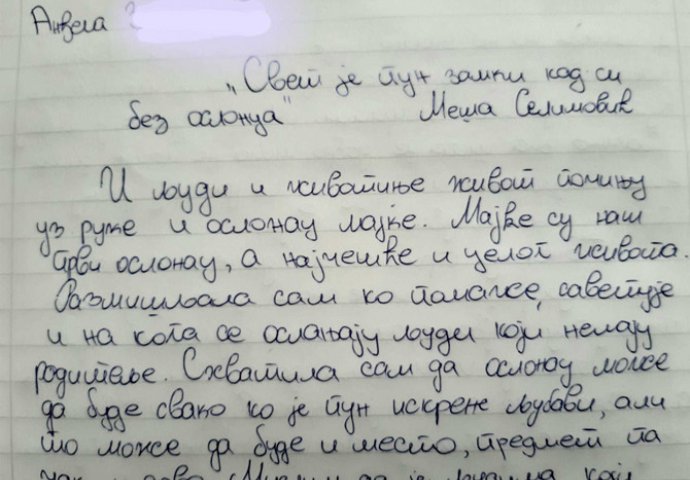 Анђела
„Свет је пун замки кад си
без ослонца" Меша Селимовић
И људи и животиње живот почињу
уз руке и ослонац мајке. Мајке су наш
први ослонац, а најчешће и целог живота.
Размишљала сам ко помаже, саветује
и на кога се ослањају људи који немају
родитеље. Схватила сам да ослонац може
да буде свако ко је пун искрене љубави, али
то може да буде и место, предмет па
чак и